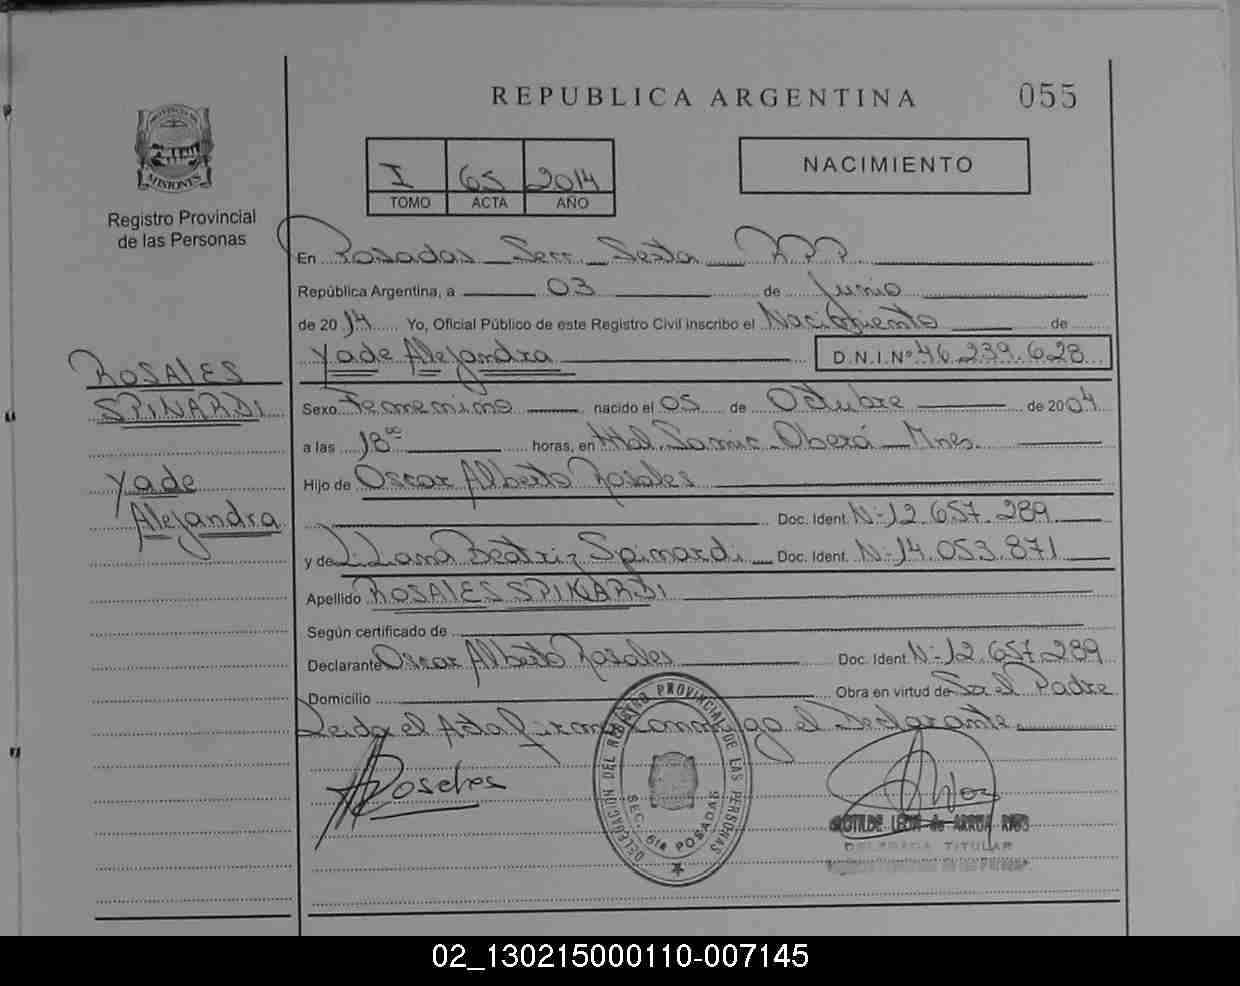 REPUBLICA ARGENTINA
055
PROVINCIA DE
MISIONES
Registro Provincial
de las Personas
I 65 2014
TOMO ACTA AÑO
NACIMIENTO
En Posadas Secc. Sexta R.P.P
República Argentina, a 03 de Junio
de 2014 Yo, Oficial Público de este Registro Civil inscribo el Nacimiento de
Yade Alejandra D.N.I.Nº 46.239.628
ROSALES
SPINARDI
Yade
Alejandra
Sexo Femenino nacido el 05 de Octubre de 2004
a las 18⁰⁰ horas, en Htal. Samic Oberá Mnes.
Hijo de Oscar Alberto Rosales
Doc. Ident. Nº 12.657.289
y de Liliana Beatriz Spinardi Doc. Ident. Nº 14.053.871
Apellido ROSALES SPINARDI
Según certificado de
Declarante Oscar Alberto Rosales Doc. Ident. Nº 12.657.289
Domicilio Obra en virtud de Ser el Padre
Leida el Acta firma conmigo el Declarante.
DELEGACION DEL REGISTRO PROVINCIAL DE LAS PERSONAS
SEC. 6ta POSADAS
CLOTILDE LEON de ARRUA
DELEGADA TITULAR
02_130215000110-007145